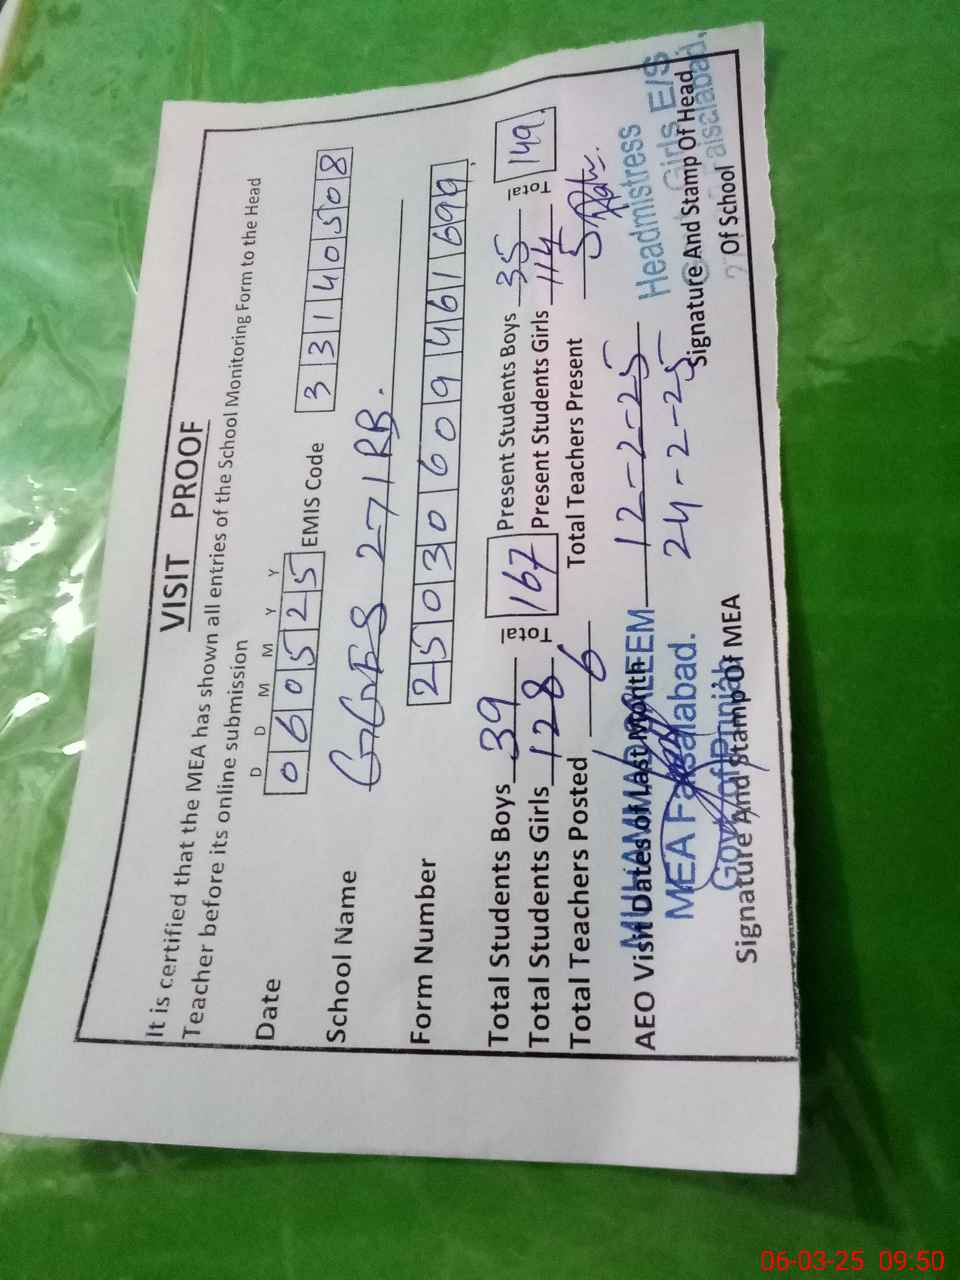 VISIT PROOF
It is certified that the MEA has shown all entries of the School Monitoring Form to the Head
Teacher before its online submission
D D M M Y Y
Date 060525 EMIS Code 33140508
School Name GGES 271RB.
Form Number 25030609461699
Total Students Boys 39 Total 167 Present Students Boys 35 Total 149
Total Students Girls 128 Present Students Girls 114
Total Teachers Posted 6 Total Teachers Present 5
AEO Visit Dates of Last Month 12-2-25
24-2-25
MUHAMMAD SALEEM
MEA Faisalabad.
Govt of Punjab
Signature And Stamp Of MEA
Headmistress
Girls E/S
Faisalabad.
Signature And Stamp Of Head
Of School
06-03-25 09:50